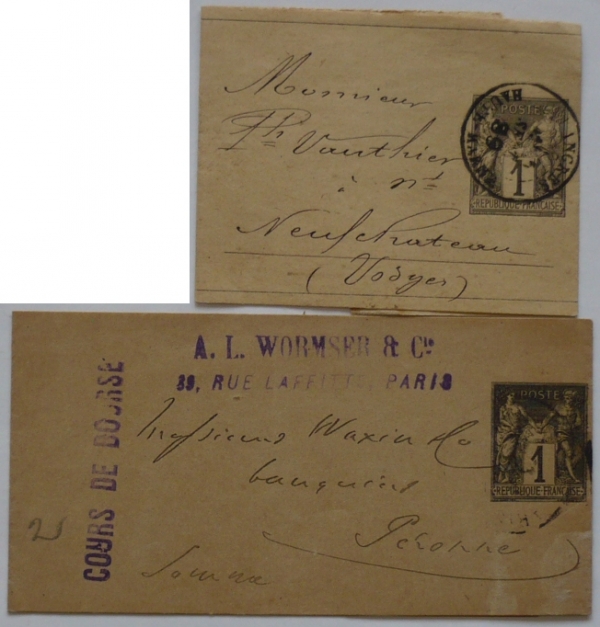 Monsieur
Ph Vauthier
à nt
Neufchateau
(Vosges)
HAUTE MARNE
89
POSTE
1
REPUBLIQUE FRANÇAISE
A. L. WORMSER & Cie
39, RUE LAFFITTE, PARIS
COURS DE BOURSE
Messieurs Waxin & Co
banquiers
Péronne
Somme
2
POSTE
1
REPUBLIQUE FRANÇAISE